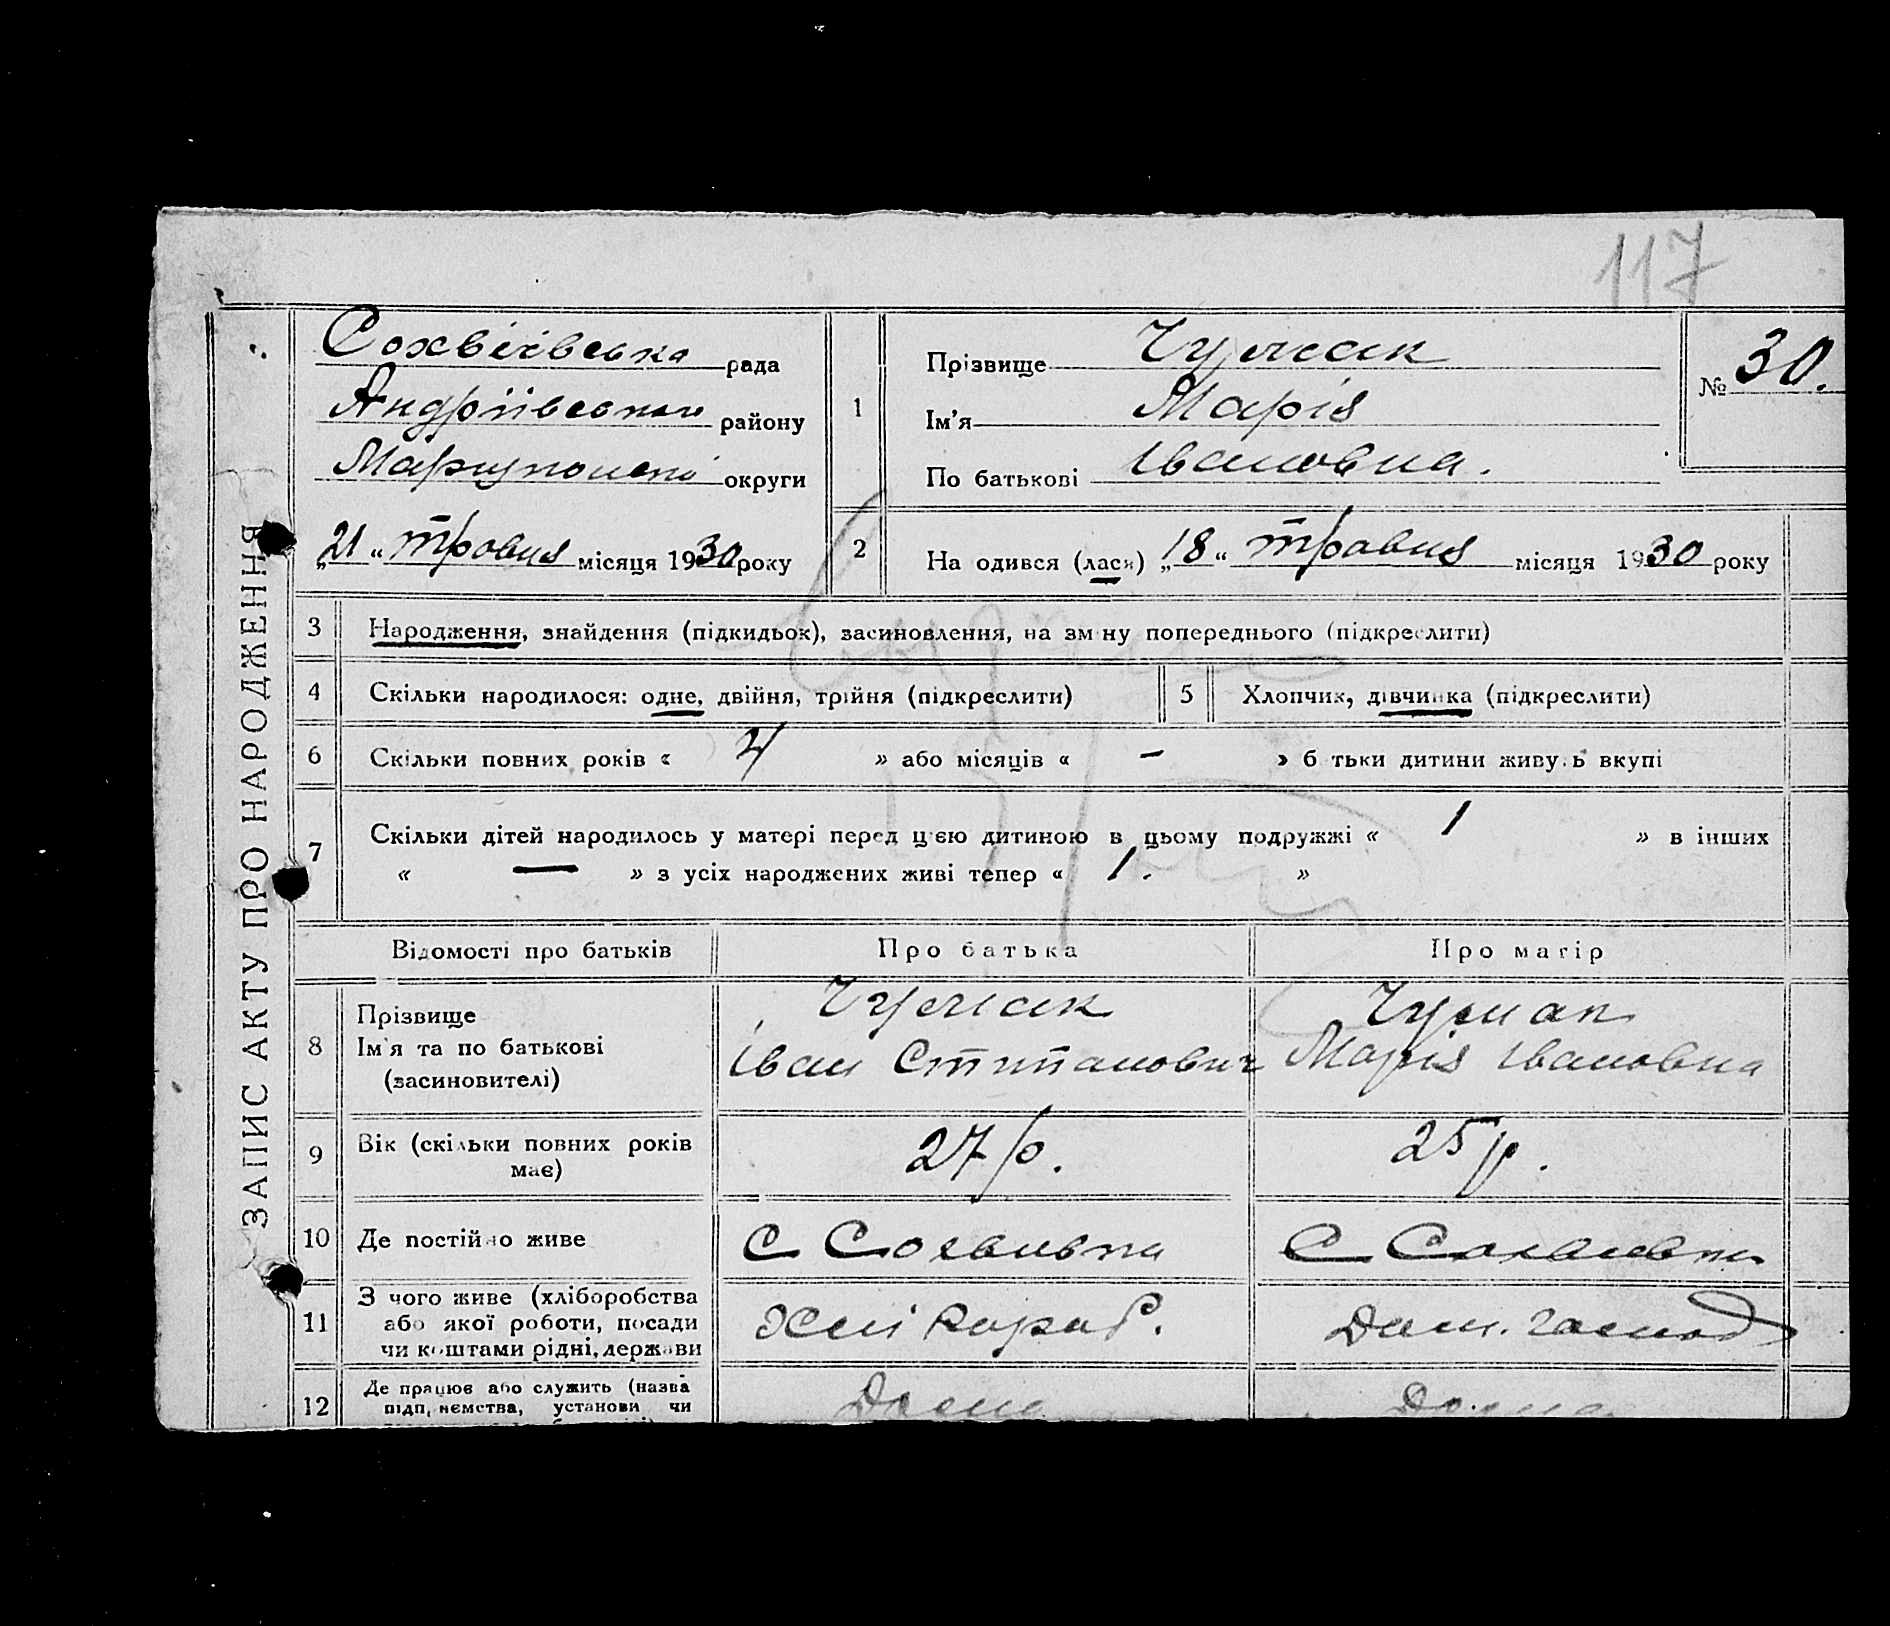 117
ЗАПИС АКТУ ПРО НАРОДЖЕННЯ
рада
Андріївського району
округи
„21“ травня місяця 1930 року
1
Прізвище
Ім'я Марія
По батькові Івановна.
№ 30.
2
На одився (лася) „18“ травня місяця 1930 року
3 Народження, знайдення (підкидьок), засиновлення, на зм ну попереднього (підкреслити)
4 Скільки народилося: одне, двійня, трійня (підкреслити)
5 Хлопчик, дівчинка (підкреслити)
6 Скільки повних років « 4 » або місяців « — » б тьки дитини живуть вкупі
7 Скільки дітей народилось у матері перед цією дитиною в цьому подружжі « 1 » в інших
« — » з усіх народжених живі тепер « 1. »
Відомості про батьків Про батька Про матір
8
Прізвище
Ім'я та по батькові
(засиновителі)
Іван Степанович
Марія Івановна
9 Вік (скільки повних років
має)
27 р.
25 р.
10 Де постійно живе
с
с
11
З чого живе (хліборобства
або якої роботи, посади
чи коштами рідні, держави
Дом. господ
12
Де працює або служить (назва
підп, ємства, установи чи
Дома
Дома